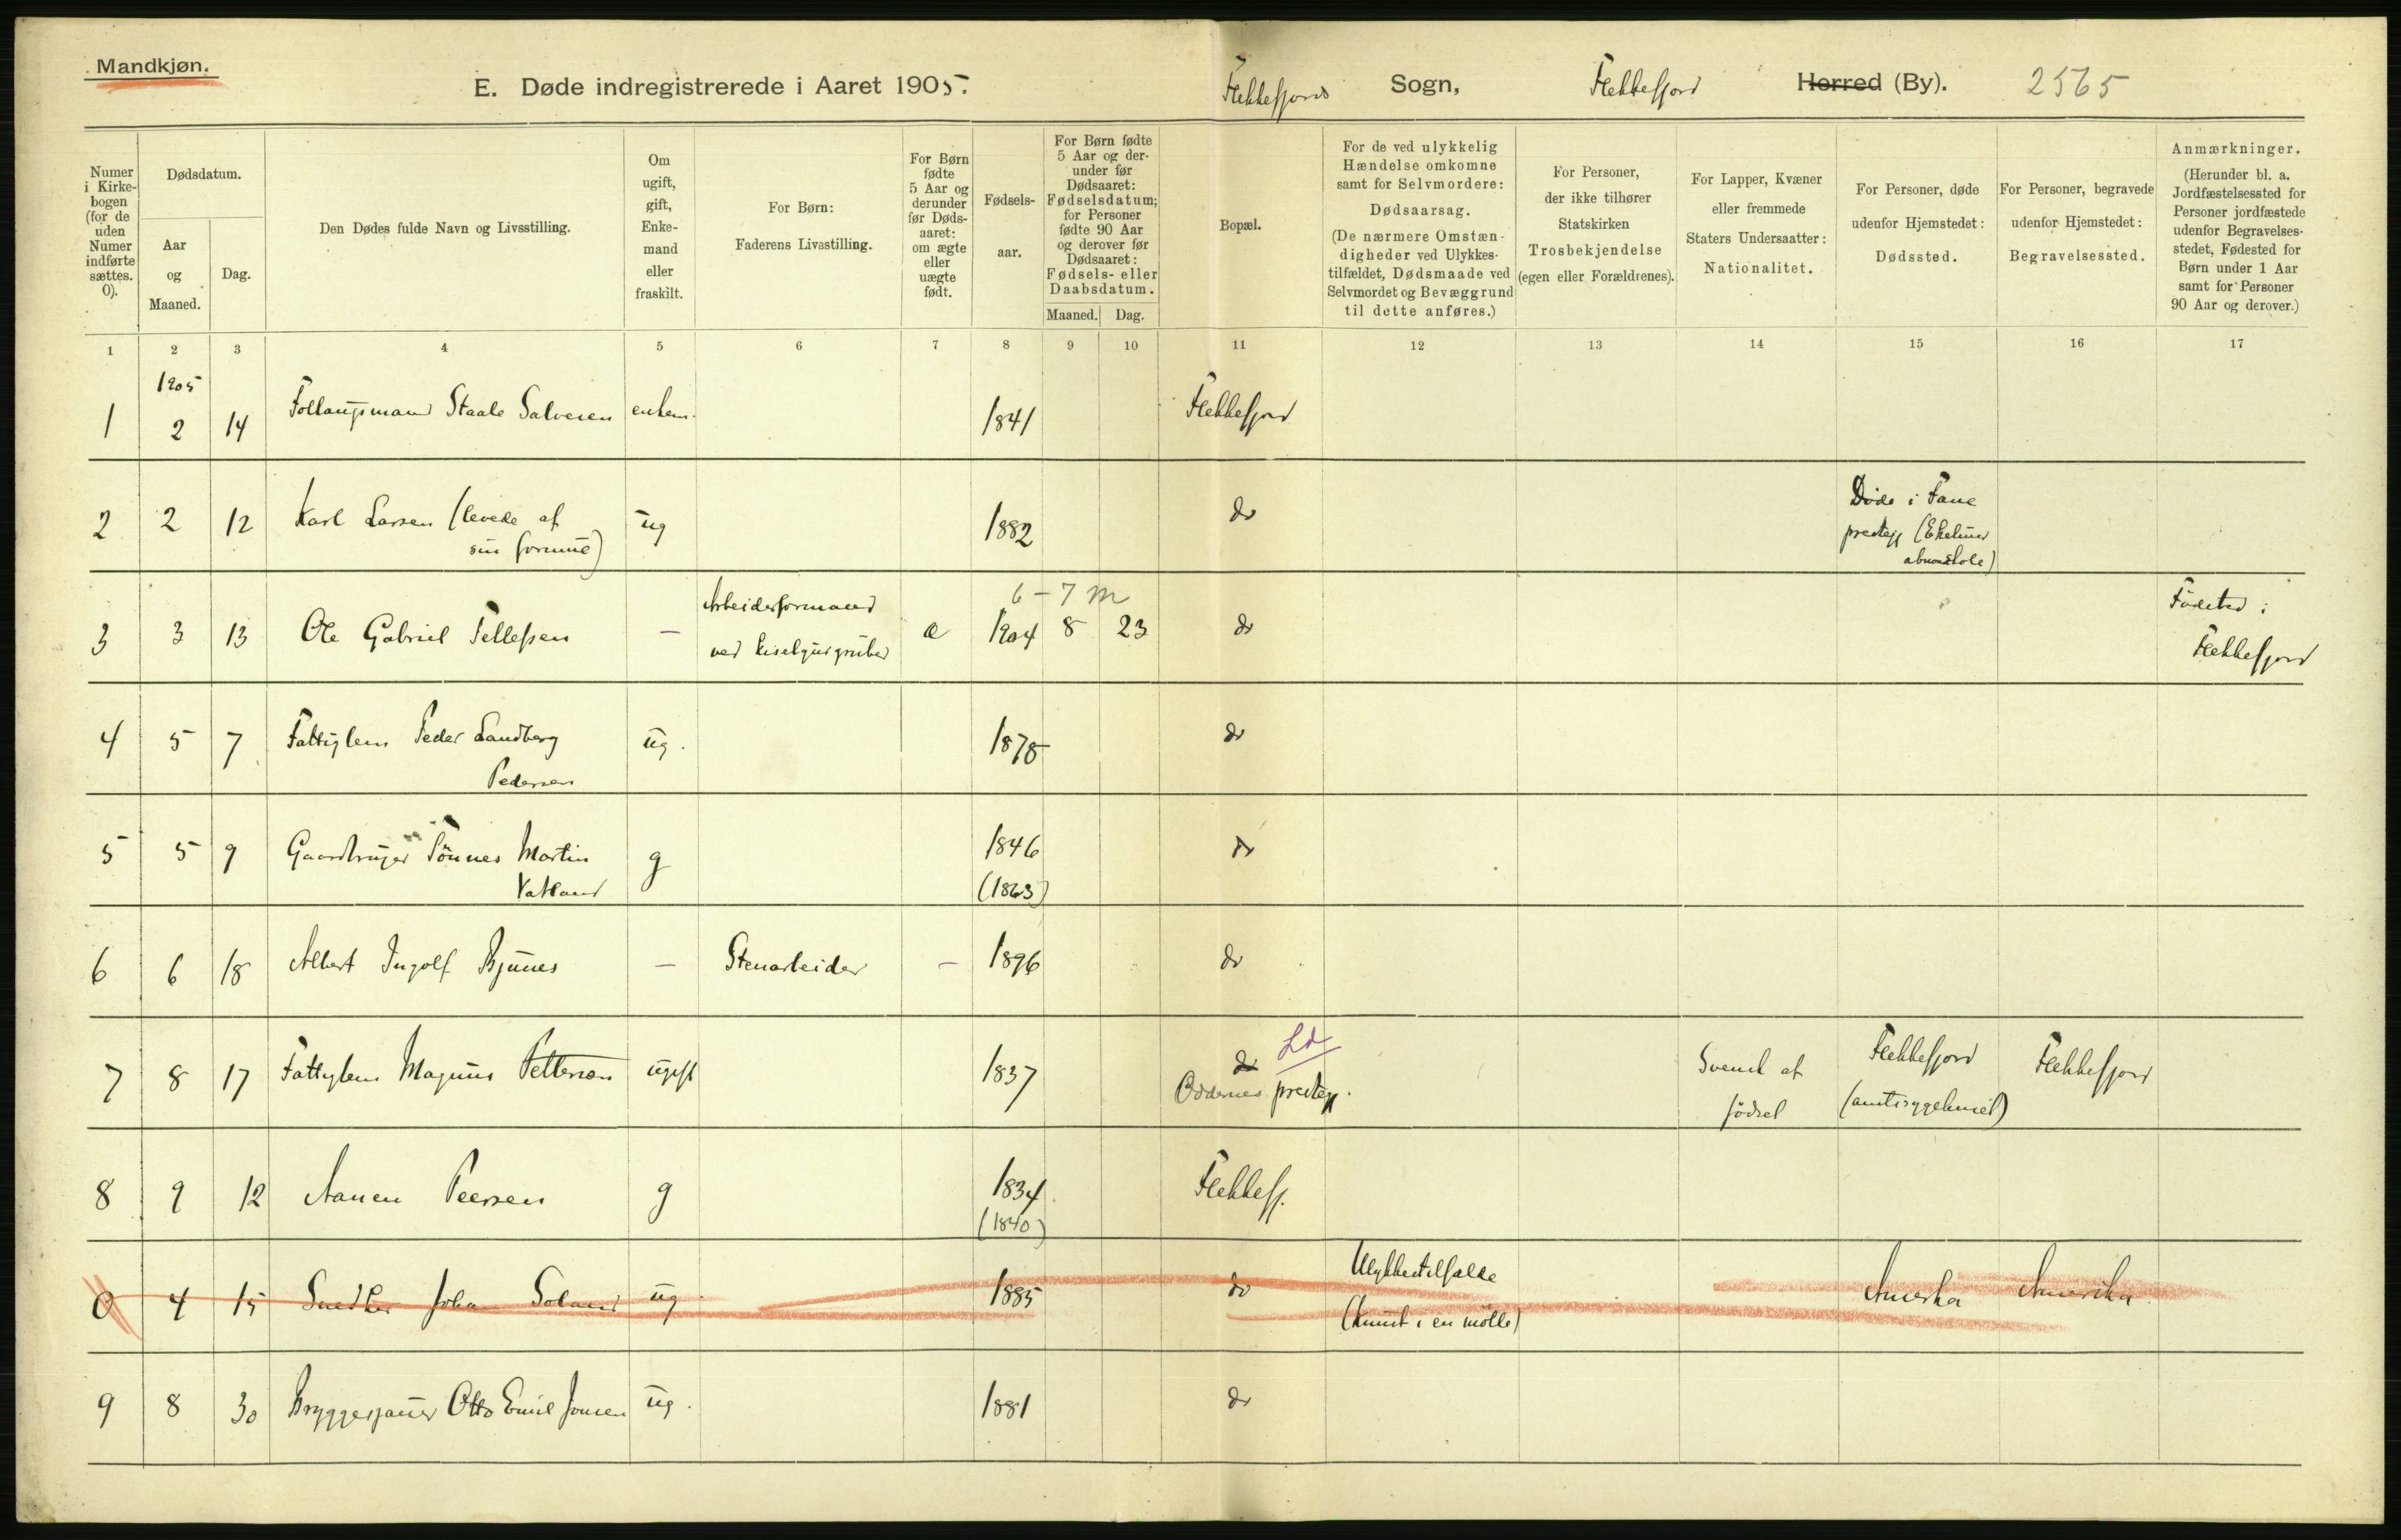 Mandkjøn.
E. Døde indregistrerede i Aaret 1905.
Flekkefjords Sogn, Flekkefjord Herred (By). 2565
Numer i Kirke-bogen (for de uden Numer indførte sættes. 0).
Dødsdatum.
Aar og Maaned.
Dag.
Den Dødes fulde Navn og Livsstilling.
Om ugift, gift, Enke-mand eller fraskilt.
For Børn: Faderens Livsstilling.
For Børn fødte 5 Aar og derunder før Døds-aaret: om ægte eller uægte født.
Fødsels-aar.
For Børn fødte 5 Aar og der-under før Dødsaaret: Fødselsdatum; for Personer fødte 90 Aar og derover før Dødsaaret: Fødsels- eller Daabsdatum.
Maaned. Dag.
Bopæl.
For de ved ulykkelig Hændelse omkomne samt for Selvmordere: Dødsaarsag. (De nærmere Omstæn-digheder ved Ulykkes-tilfældet, Dødsmaade ved Selvmordet og Bevæggrund til dette anføres.)
For Personer, der ikke tilhører Statskirken Trosbekjendelse (egen eller Forældrenes).
For Lapper, Kvæner eller fremmede Staters Undersaatter: Nationalitet.
For Personer, døde udenfor Hjemstedet: Dødssted.
For Personer, begravede udenfor Hjemstedet: Begravelsessted.
Anmærkninger. (Herunder bl. a. Jordfæstelsessted for Personer jordfæstede udenfor Begravelses-stedet, Fødested for Børn under 1 Aar samt for Personer 90 Aar og derover.)
1 2 3 4 5 6 7 8 9 10 11 12 13 14 15 16 17
1905
1 2 14 Staale Salvesen enkem. 1841 Flekkefjord
2 2 12 Karl Larsen (levede af ug 1882 do Døde i Fane
sin formue) prestegj (Ekelund
abnormskole)
6 – 7 m
3 3 13 Ole Gabriel Tellefsen — Arbeidsformand æ 1904 8 23 do Fødested:
ved kiselgurgruber Flekkefjord
4 5 7 Fattiglem Peder Sandberg ug. 1878 do
Pedersen
5 5 9 Gaardbruger Tönnes Martin g 1846 do
Vatland (1863)
6 6 18 Albert Ingolf Bjunes — Stenarbeider — 1896 do
Ld
7 8 17 Fattiglem Magnus Petterson ugift 1837 do Svensk af Flekkefjord Flekkefjord
Oddernes prestegj. födsel (amtssygehuset)
8 9 12 Aanen Peersen g 1834 Flekkefj.
(1840)
0 4 15 Snedker Johan Soland ug 1885 do Ulykkestilfælde Amerika Amerika
(knust i en mölle)
9 8 30 Bryggesjauer Otto Emil Jonsen ug. 1881 do